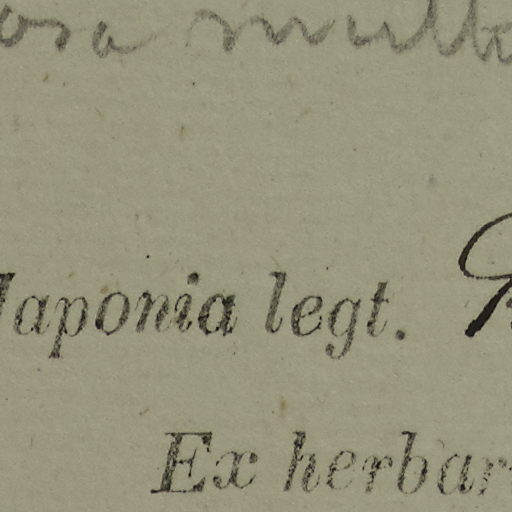 osa mult
Japonia legt.
Ex herbar